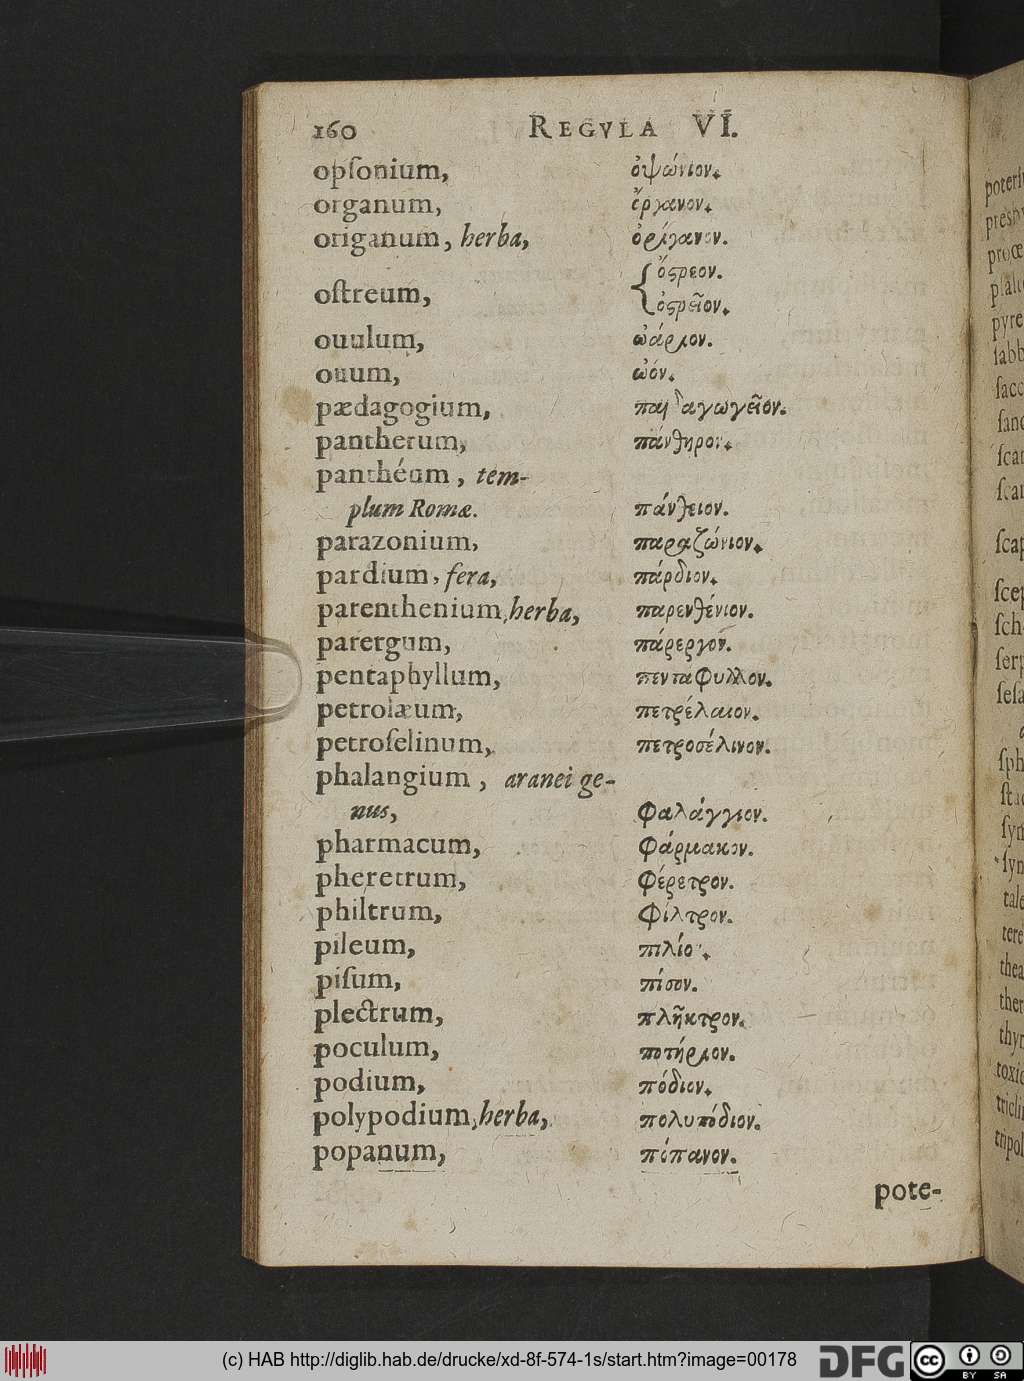 160 REGVLA VI.
opſonium, ὀψώνιον.
organum, ὄργανον.
origanum, herba, ὀρίγανον.
oſtreum, { ὄςρεον.
ὀςρεῖον.
ouulum, ὠάριον.
ouum, ὠόν.
pædagogium, παιδαγωγεῖον.
pantherum, πάνθηρον.
panthéum, tem-
plum Romæ. πάνθειον.
parazonium, παραζώνιον.
pardium, fera, πάρδιον.
parenthenium, herba, παρενθένιον.
parergum, πάρεργον.
pentaphyllum, πενταφυλλον.
petrolæum, πετρέλαιον.
petroſelinum, πετροσέλινον.
phalangium, aranei ge-
nus, φαλάγγιον.
pharmacum, φάρμακον.
pheretrum, φέρετρον.
philtrum, φίλτρον.
pileum, πιλίον.
piſum, πίσον.
plectrum, πλῆκτρον.
poculum, ποτήριον.
podium, πόδιον.
polypodium, herba, πολυπόδιον.
popanum, πόπανον.
pote-
(c) HAB http://diglib.hab.de/drucke/xd-8f-574-1s/start.htm?image=00178
DFG
cc BY SA